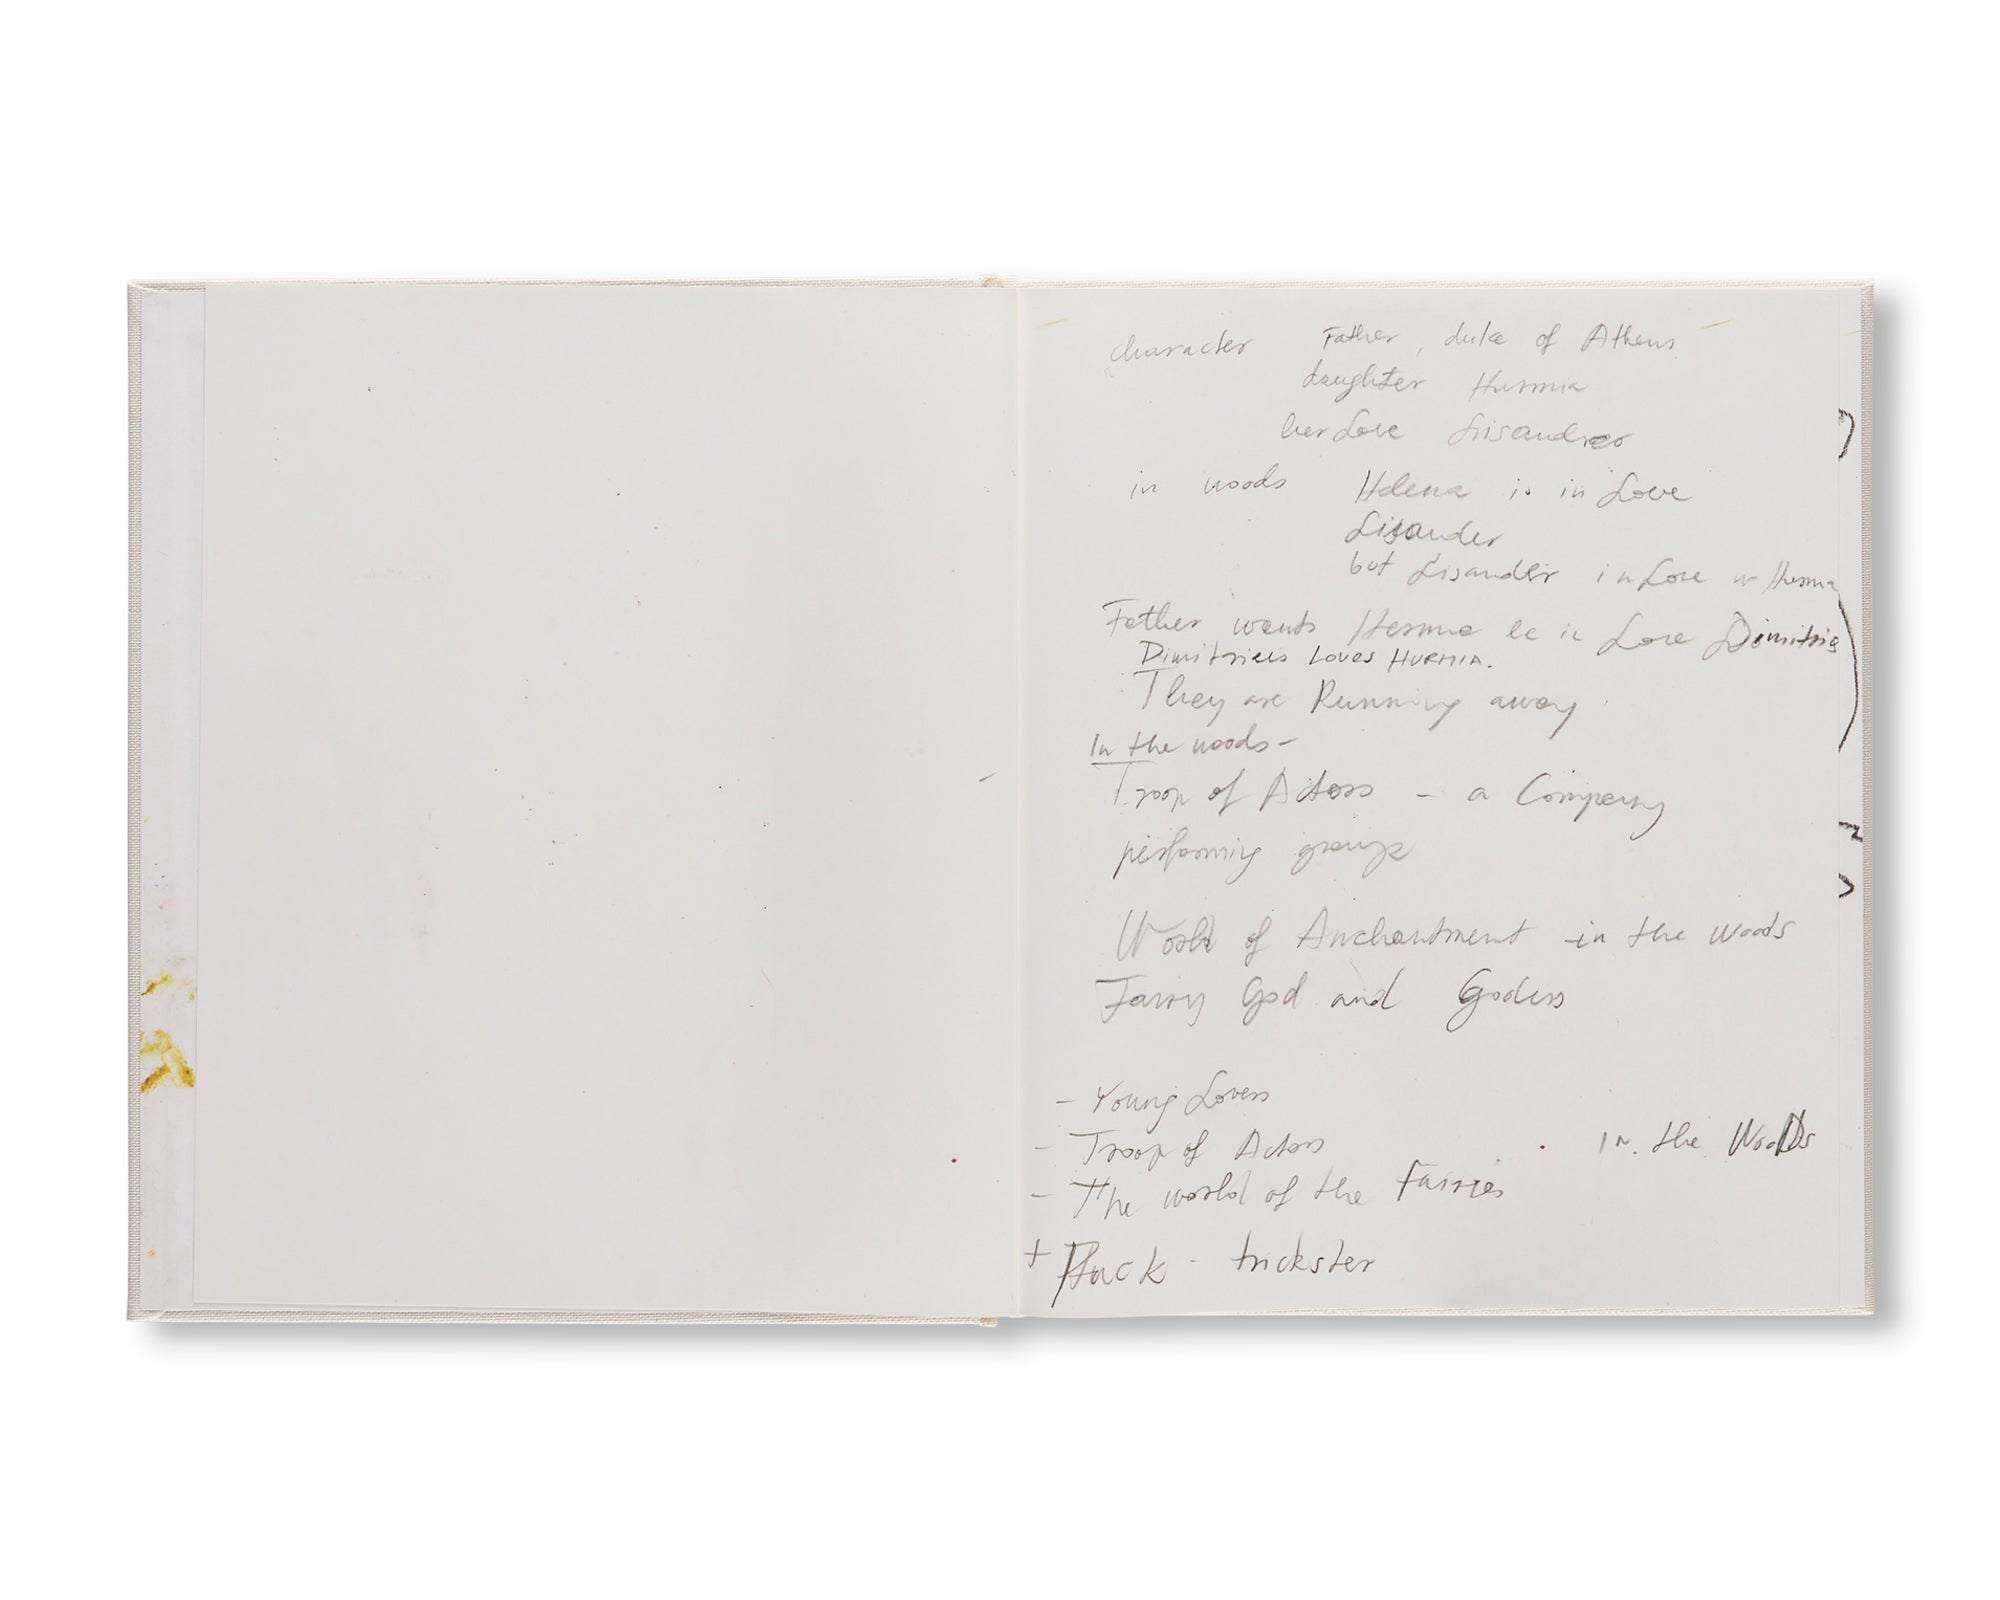 character Father, duke of Athens
daughter Hurmia
her Love Lisandreo
in woods Helena is in Love
Lisander
but Lisander in Love w Hermia
Father wants Hermia be in Love Dimitris
Dimitrieus Loves HURMIA.
They are Running away
In the woods -
Troop of Actors - a Company
performing groups
World of Anchantment in the woods
Fairy God and Godess
- Young Lovers
- Troop of Actors in the Woods
- The world of the Fairies
+ Puck - trickster